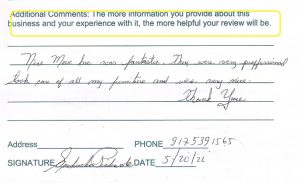 Additional Comments: The more information you provide about this
business and your experience with it, the more helpful your review will be.
"Nice Move Inc was fantastic. They were very proffessional
took care of all my furniture and was very nice.
Thank You
Address PHONE 9175391565
SIGNATURE DATE 5/20/22